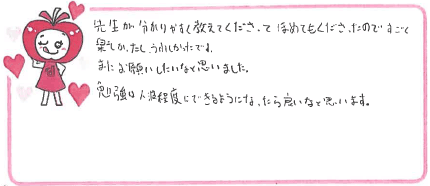 先生が分かりやすく教えてくださって ほめてもくださったのですごく
楽しかったしうれしかったです。
またお願いしたいなと思いました。
勉強は人並程度にできるようになったら良いなと思います。